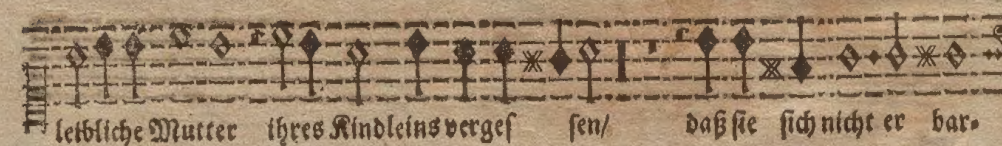 leibliche Mutter ihres Kindleins vergeſ ſen/ daß ſie ſich nicht er bar⸗